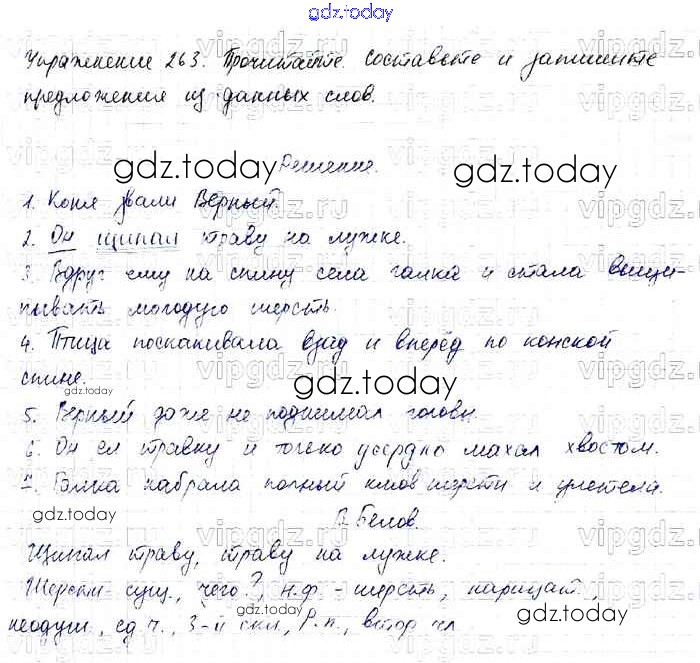 gdz.today
Упражнение 263. Прочитайте. Составьте и запишите
предложения из данных слов.
gdz.today
Решение.
gdz.today
1. Коня звали Верный.
2. Он щипал траву на лужке.
3. Вдруг ему на спину села галка и стала выщи-
пывать молодую шерсть.
4. Птица поскакивала взад и вперёд по конской
спине.
gdz.today
gdz.today
5. Верный даже не поднимал головы.
6. Он ел травку и только усердно махал хвостом.
7. Галка набрала полный клюв шерсти и улетела.
gdz.today
В. Белов.
gdz.today
Щипал траву, траву на лужке.
Шерсти - сущ., чего?, н.ф. - шерсть, нарицат.,
неодуш., ед.ч., 3-й скл., Р.п., втор. чл.